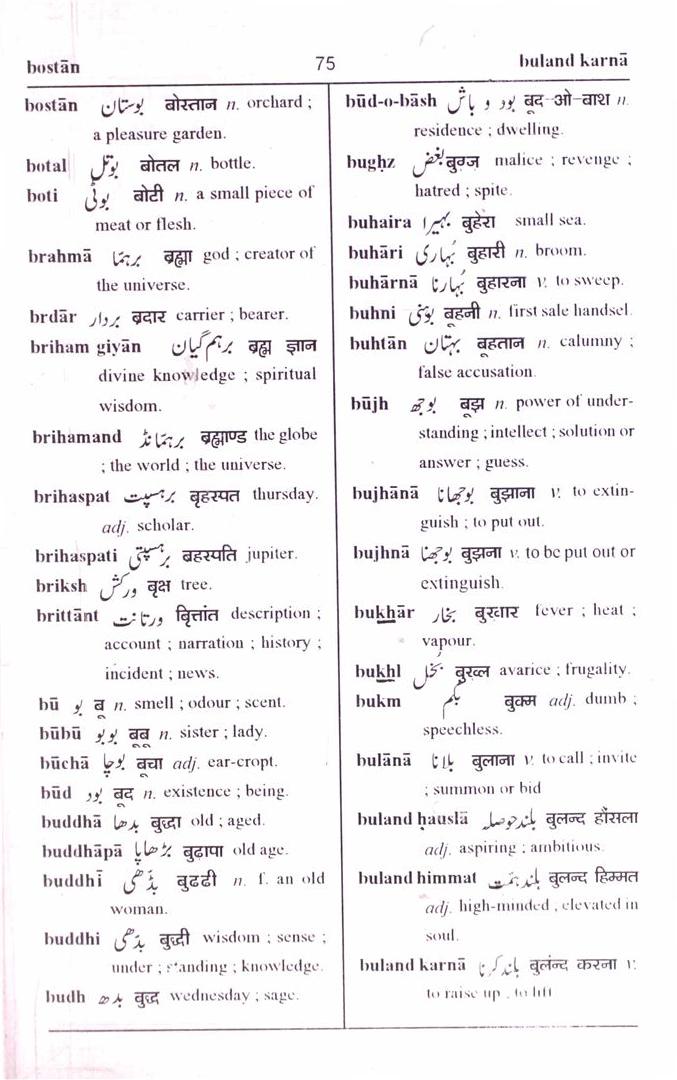 bostān 75 buland karnā
bostān بوستان बोस्तान n. orchard ;
a pleasure garden.
botal بوتل बोतल n. bottle.
boti بوٹی बोटी n. a small piece of
meat or flesh.
brahmā برہما ब्रह्मा god ; creator of
the universe.
brdār بردار ब्रदार carrier ; bearer.
briham giyān برہم گیان ब्रह्म ज्ञान
divine knowledge ; spiritual
wisdom.
brihamand برہمانڈ ब्रह्माण्ड the globe
; the world ; the universe.
brihaspat برہسپت बृहस्पत thursday.
adj. scholar.
brihaspati برہسپتی ब्रहस्पति jupiter.
briksh ورکش बृक्ष tree.
brittānt ورتانت व्रित्तांत description ;
account ; narration ; history ;
incident ; news.
bū بو बू n. smell ; odour ; scent.
būbū بوبو बूबू n. sister ; lady.
būchā بوچا बूचा adj. ear-cropt.
būd بود बूद n. existence ; being.
buddhā بدھا बुद्धा old ; aged.
buddhāpā بڑھاپا बुढापा old age.
buddhī بڈھی बुढढी n. f. an old
woman.
buddhi بدھی बुद्धी wisdom ; sense ;
under ; standing ; knowledge.
budh بدھ बुद्ध wednesday ; sage.
būd-o-bāsh بود و باش बूद-ओ-बाश n.
residence ; dwelling.
bughz بغض बुग्ज malice ; revenge ;
hatred ; spite.
buhaira بہیرا बुहेरा small sea.
buhāri بُہاری बुहारी n. broom.
buhārnā بُہارنا बुहारना v. to sweep.
buhni بوہنی बूहनी n. first sale handsel.
buhtān بہتان बूहतान n. calumny ;
false accusation.
būjh بوجھ बूझ n. power of under-
standing ; intellect ; solution or
answer ; guess.
bujhānā بوجھانا बुझाना v. to extin-
guish ; to put out.
bujhnā بوجھنا बुझना v. to be put out or
extinguish.
bukhār بخار बुखार fever ; heat ;
vapour.
bukhl بخل बुख्ल avarice ; frugality.
bukm بکم बुक्म adj. dumb ;
speechless.
bulānā بلانا बुलाना v. to call ; invite
; summon or bid
buland ḥauslā بلند حوصلہ बुलन्द हौंसला
adj. aspiring ; ambitious.
buland himmat بلند ہمّت बुलन्द हिम्मत
adj. high-minded ; elevated in
soul.
buland karnā بلند کرنا बुलंन्द करना v.
to raise up , to lift